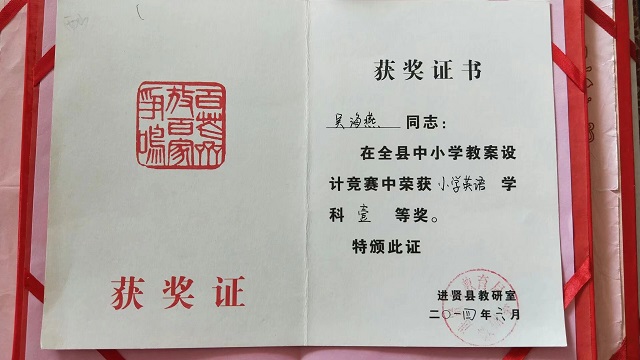 百花齐
放百家
争鸣
获奖证
获奖证书
吴海燕 同志：
在全县中小学教案设
计竞赛中荣获 小学英语 学
科 壹 等奖。
特颁此证
进贤县教研室
二〇一四年六月